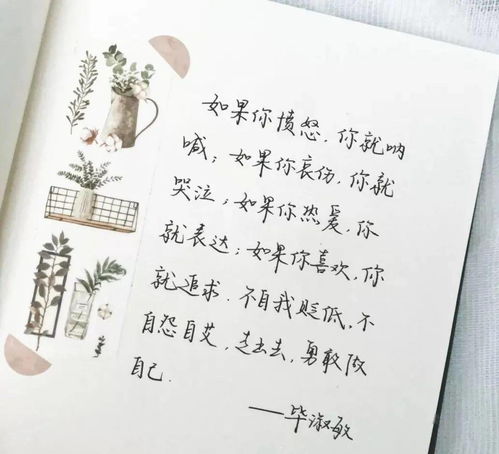 如果你愤怒，你就呐
喊；如果你哀伤，你就
哭泣；如果你热爱，你
就表达；如果你喜欢，你
就追求．不自我贬低，不
自怨自艾，走出去，勇敢做
自己．
——毕淑敏